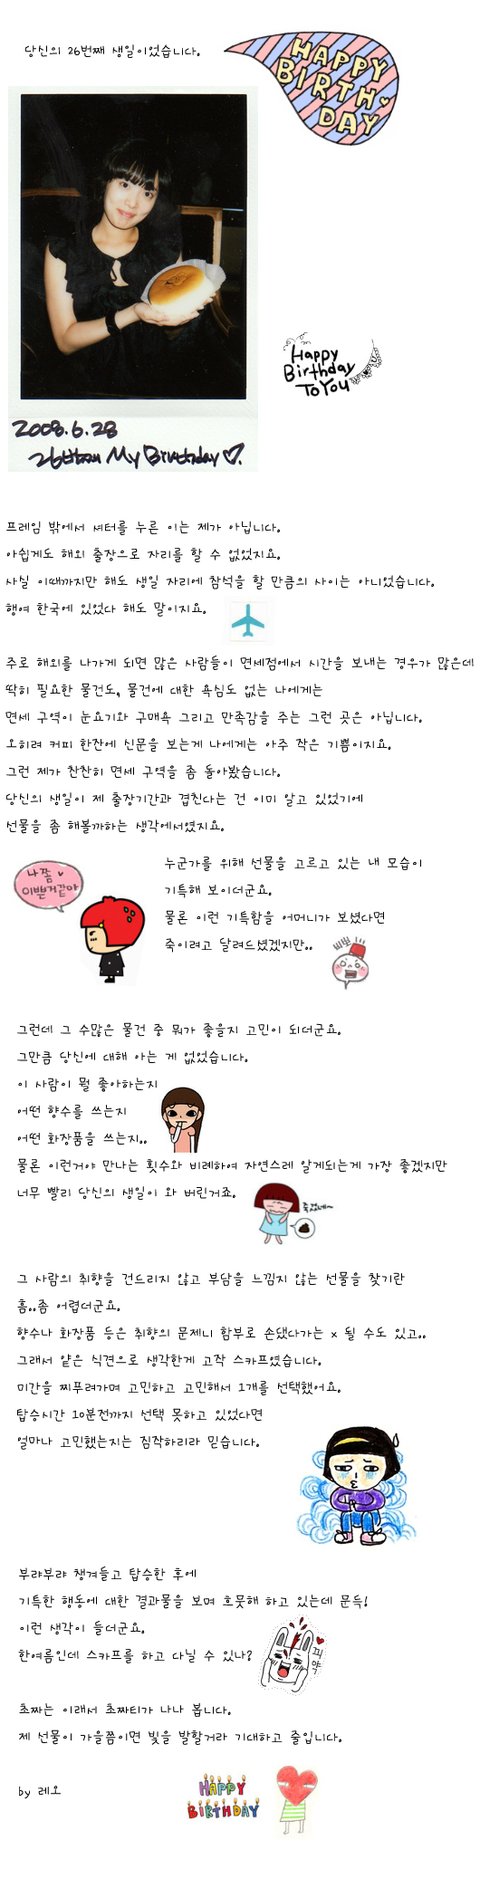 당신의 26번째 생일이었습니다.
HAPPY
BIRTH
DAY
Happy
Birthday
To You
2008.6.28
26번째 My Birthday ♡.
프레임 밖에서 셔터를 누른 이는 제가 아닙니다.
아쉽게도 해외 출장으로 자리를 할 수 없었지요.
사실 이때까지만 해도 생일 자리에 참석을 할 만큼의 사이는 아니었습니다.
행여 한국에 있었다 해도 말이지요.
주로 해외를 나가게 되면 많은 사람들이 면세점에서 시간을 보내는 경우가 많은데
딱히 필요한 물건도, 물건에 대한 욕심도 없는 나에게는
면세 구역이 눈요기와 구매욕 그리고 만족감을 주는 그런 곳은 아닙니다.
오히려 커피 한잔에 신문을 보는게 나에게는 아주 작은 기쁨이지요.
그런 제가 찬찬히 면세 구역을 좀 돌아봤습니다.
당신의 생일이 제 출장기간과 겹친다는 건 이미 알고 있었기에
선물을 좀 해볼까하는 생각에서였지요.
나쫌
이쁜거같아
누군가를 위해 선물을 고르고 있는 내 모습이
기특해 보이더군요.
물론 이런 기특함을 어머니가 보셨다면
죽이려고 달려드셨겠지만..
삐뽀
그런데 그 수많은 물건 중 뭐가 좋을지 고민이 되더군요.
그만큼 당신에 대해 아는 게 없었습니다.
이 사람이 뭘 좋아하는지
어떤 향수를 쓰는지
어떤 화장품을 쓰는지..
물론 이런거야 만나는 횟수와 비례하여 자연스레 알게되는게 가장 좋겠지만
너무 빨리 당신의 생일이 와 버린거죠.
죽겠네~
그 사람의 취향을 건드리지 않고 부담을 느낌지 않는 선물을 찾기란
흠..좀 어렵더군요.
향수나 화장품 등은 취향의 문제니 함부로 손댔다가는 x 될 수도 있고..
그래서 얕은 식견으로 생각한게 고작 스카프였습니다.
미간을 찌푸려가며 고민하고 고민해서 1개를 선택했어요.
탑승시간 10분전까지 선택 못하고 있었다면
얼마나 고민했는지는 짐작하리라 믿습니다.
부랴부랴 챙겨들고 탑승한 후에
기특한 행동에 대한 결과물을 보며 흐뭇해 하고 있는데 문득!
이런 생각이 들더군요.
한여름인데 스카프를 하고 다닐 수 있나?
끼약
초짜는 이래서 초짜티가 나나 봅니다.
제 선물이 가을쯤이면 빛을 발할거라 기대하고 줄입니다.
by 레오
HAPPY
BIRTHDAY